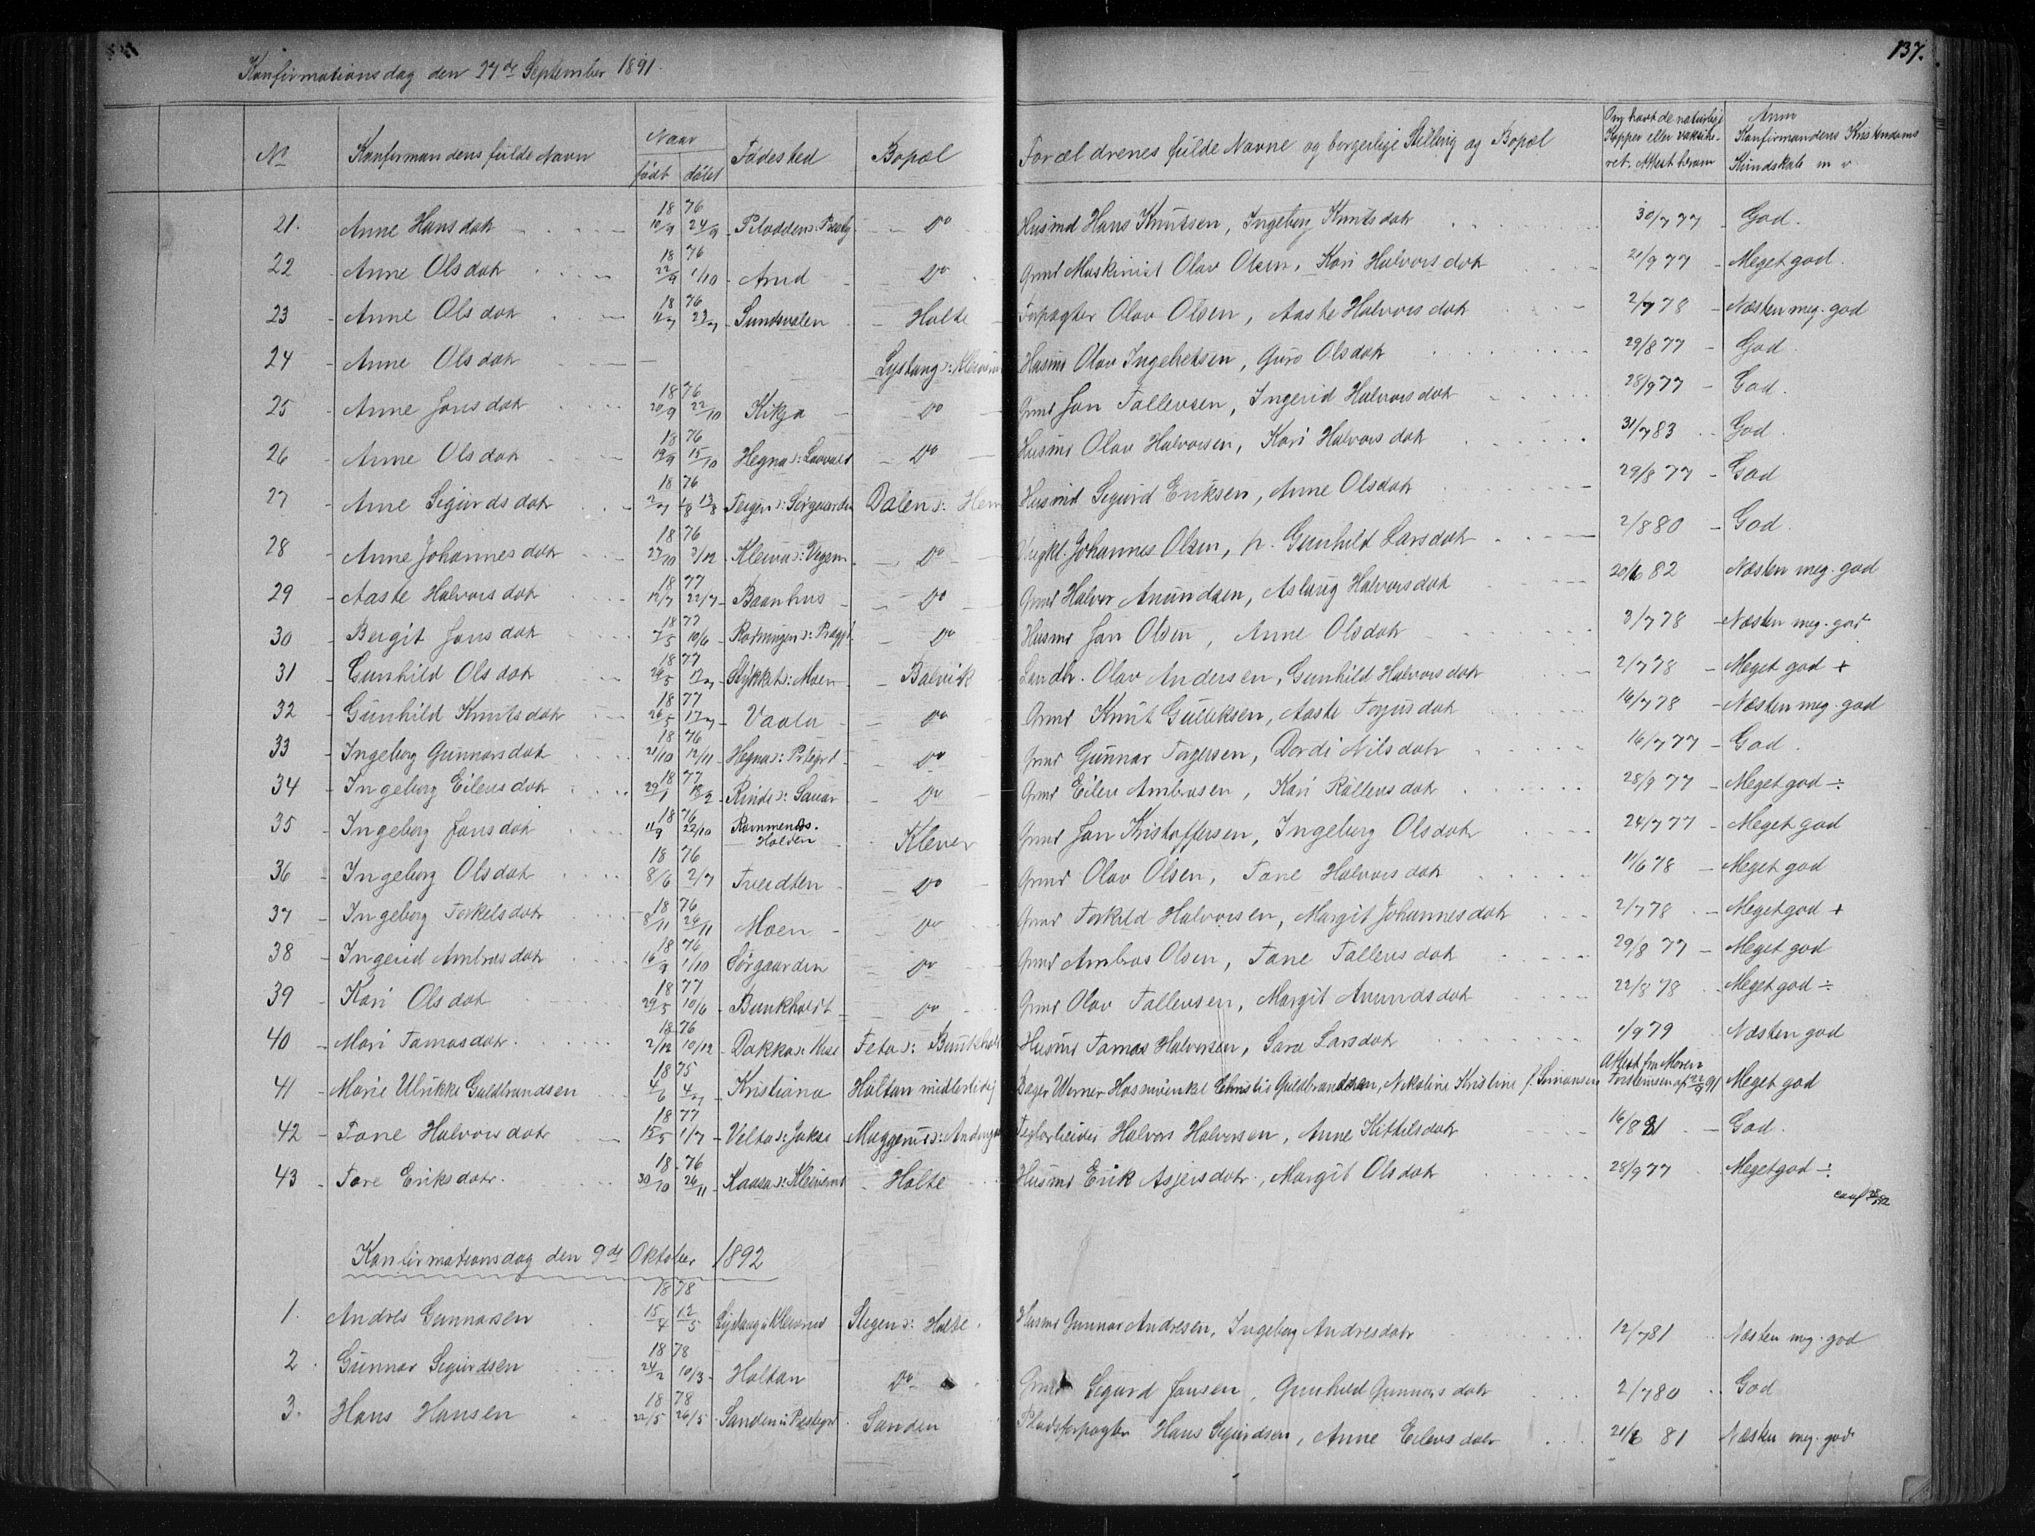 137.
Konfirmationsdag den 27de September 1891.
No Konfirmandens fulde Navn Naar født døbt Fødested Bopæl Forældrenes fulde Navne og borgerlige Stilling og Bopæl Om havt de naturlige Kopper eller vaksineret. Attest herom Anm Konfirmandens Kristendoms Kundskab m v
21. Anne Hansdatr 18 76 10/9 24/9 Do Husmd Hans Knutsen, Ingeborg Knutsdatr 30/7 77 God.
22 Anne Olsdatr 18 76 22/9 1/10 Do Grmd Maskinist Olav Olsen, Kari Halvorsdatr 21/9 77 Meget god.
23 Anne Olsdatr 18 76 Sundsvalen Holte Forpagter Olav Olsen, Aaste Halvorsdatr 2/7 78 Næsten meg. god
24 Anne Olsdatr Husmd Olav Ingebretsen, Guro Olsdatr 29/8 77 God.
25 Anne Jonsdatr 18 76 20/9 22/10 Kikja Do Grmd Jon Tallevsen, Ingerid Halvorsdatr 28/9 77 God.
26 Anne Olsdatr 18 76 19/9 15/10 Do Husmd Olav Halvorsen, Kari Halvorsdatr 31/7 83 God.
27 Anne Sigurdsdatr 18 76 Teigen Sørgaarden Dalen Husmd Sigurd Eriksen, Anne Olsdatr 29/8 77 God
28 Anne Johannesdatr 18 76 27/10 3/12 Do Johannes Olsen, Gunhild Larsdatr 2/8 80 God.
29 Aaste Halvorsdatr 18 77 12/7 22/7 Baanhus Do Grmd Halvor Anundsen, Aslaug Halvorsdatr 20/6 82 Næsten meg. god
30 Bergit Jonsdatr 18 77 7/5 10/6 Do Husmd Jon Olsen, Anne Olsdatr 3/7 78 Næsten meg. god
31 Gunhild Olsdatr 18 77 Moen Balvik Landh. Olav Andersen, Gunhild Halvorsdatr 2/7 78 Meget god +
32 Gunhild Knutsdatr 18 77 26/5 17/7 Vaala Do Grmd Knut Gulliksen, Aaste Torjusdatr 16/7 78 Næsten meg. god
33 Ingeborg Gunnarsdatr 18 76 21/10 12/11 Do Grmd Gunnar Torgersen, Dordi Nilsdatr 16/7 77 God.
34 Ingeborg Eilevsdatr 18 77 29/1 18/2 Rinde Sauar Do Grmd Eilev Ambrosen, Kari Rollevsdatr 28/9 77 Meget god ÷
35 Ingeborg Jonsdatr 18 76 11/9 22/10 Rommenes. Holden Klever Grmd Jon Kristoffersen, Ingeborg Olsdatr 24/7 77 Meget god
36 Ingeborg Olsdatr 18 76 8/6 2/7 Tveidten Do Grmd Olav Olsen, Tone Halvorsdatr 11/6 78 Meget god
37 Ingeborg Torkelsdatr 18 76 8/11 26/11 Moen Do Grmd Torkild Halvorsen, Margit Johannesdatr 2/7 78 Meget god +
38 Ingerid Ambrosdatr 18 76 16/9 1/10 Sørgaarden Do Grmd Ambros Olsen, Tone Tallevsdatr 29/8 77 Meget god
39 Kari Olsdatr 18 77 29/5 10/6 Bunkholdt Do Grmd Olav Tallevsen, Margit Anundsdatr 22/8 78 Meget god ÷
40 Mari Tomasdatr 18 76 2/12 10/12 Feta Husmd Tomas Halvorsen, Sara Larsdatr 1/9 79 Næsten god
41 Marie Ulrikke Guldbrandsen 18 75 4/6 4/7 Kristiania Holtan midlertidig Bager Werner Christio Guldbrandsen, Nikoline Kristine f Simonsen Attest fra Meget god
42 Tone Halvorsdatr 18 77 15/5 1/7 Velta Teglarbeider Halvor Halvorsen, Anne Kittilsdatr 16/8 81 God.
43 Tore Eriksdatr. 18 76 30/10 26/11 Kaasa Holte Husmd Erik Asjersdatr, Margit Olsdatr 28/9 77 Meget god ÷
Konfirmationsdag den 9de Oktober 1892
1. Andres Gunnarsen 18 78 15/4 12/5 Stegen Holte Husmd Gunnar Andresen, Ingeborg Andresdatr 12/7 81 Næsten meg. god
2 Gunnar Sigurdsen 18 78 24/2 10/3 Holtan Do Grmd Sigurd Jonsen, Gunhild Gunnarsdatr 2/7 80 God
3. Hans Hansen 18 78 22/5 26/5 Sanden Sanden Pladsforpagter Hans Sigurdsen, Anne Eilevsdatr 21/6 81 Næsten meg. god